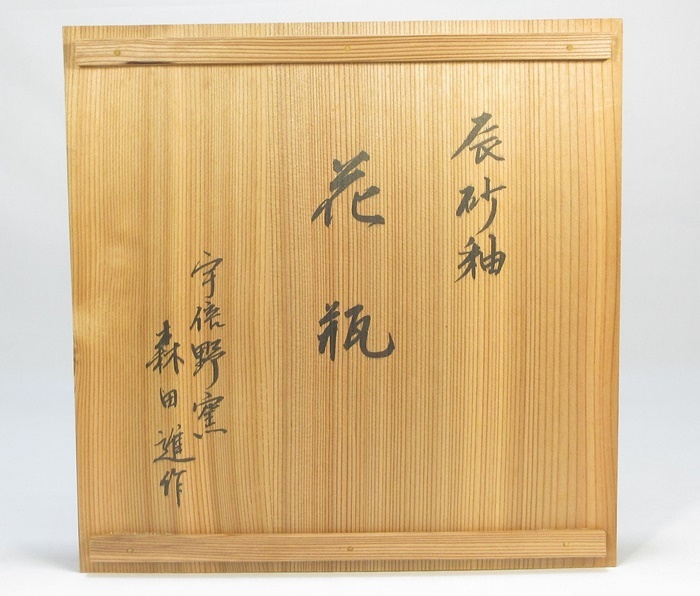 辰砂釉
花瓶
宇倍野窯
森田進作